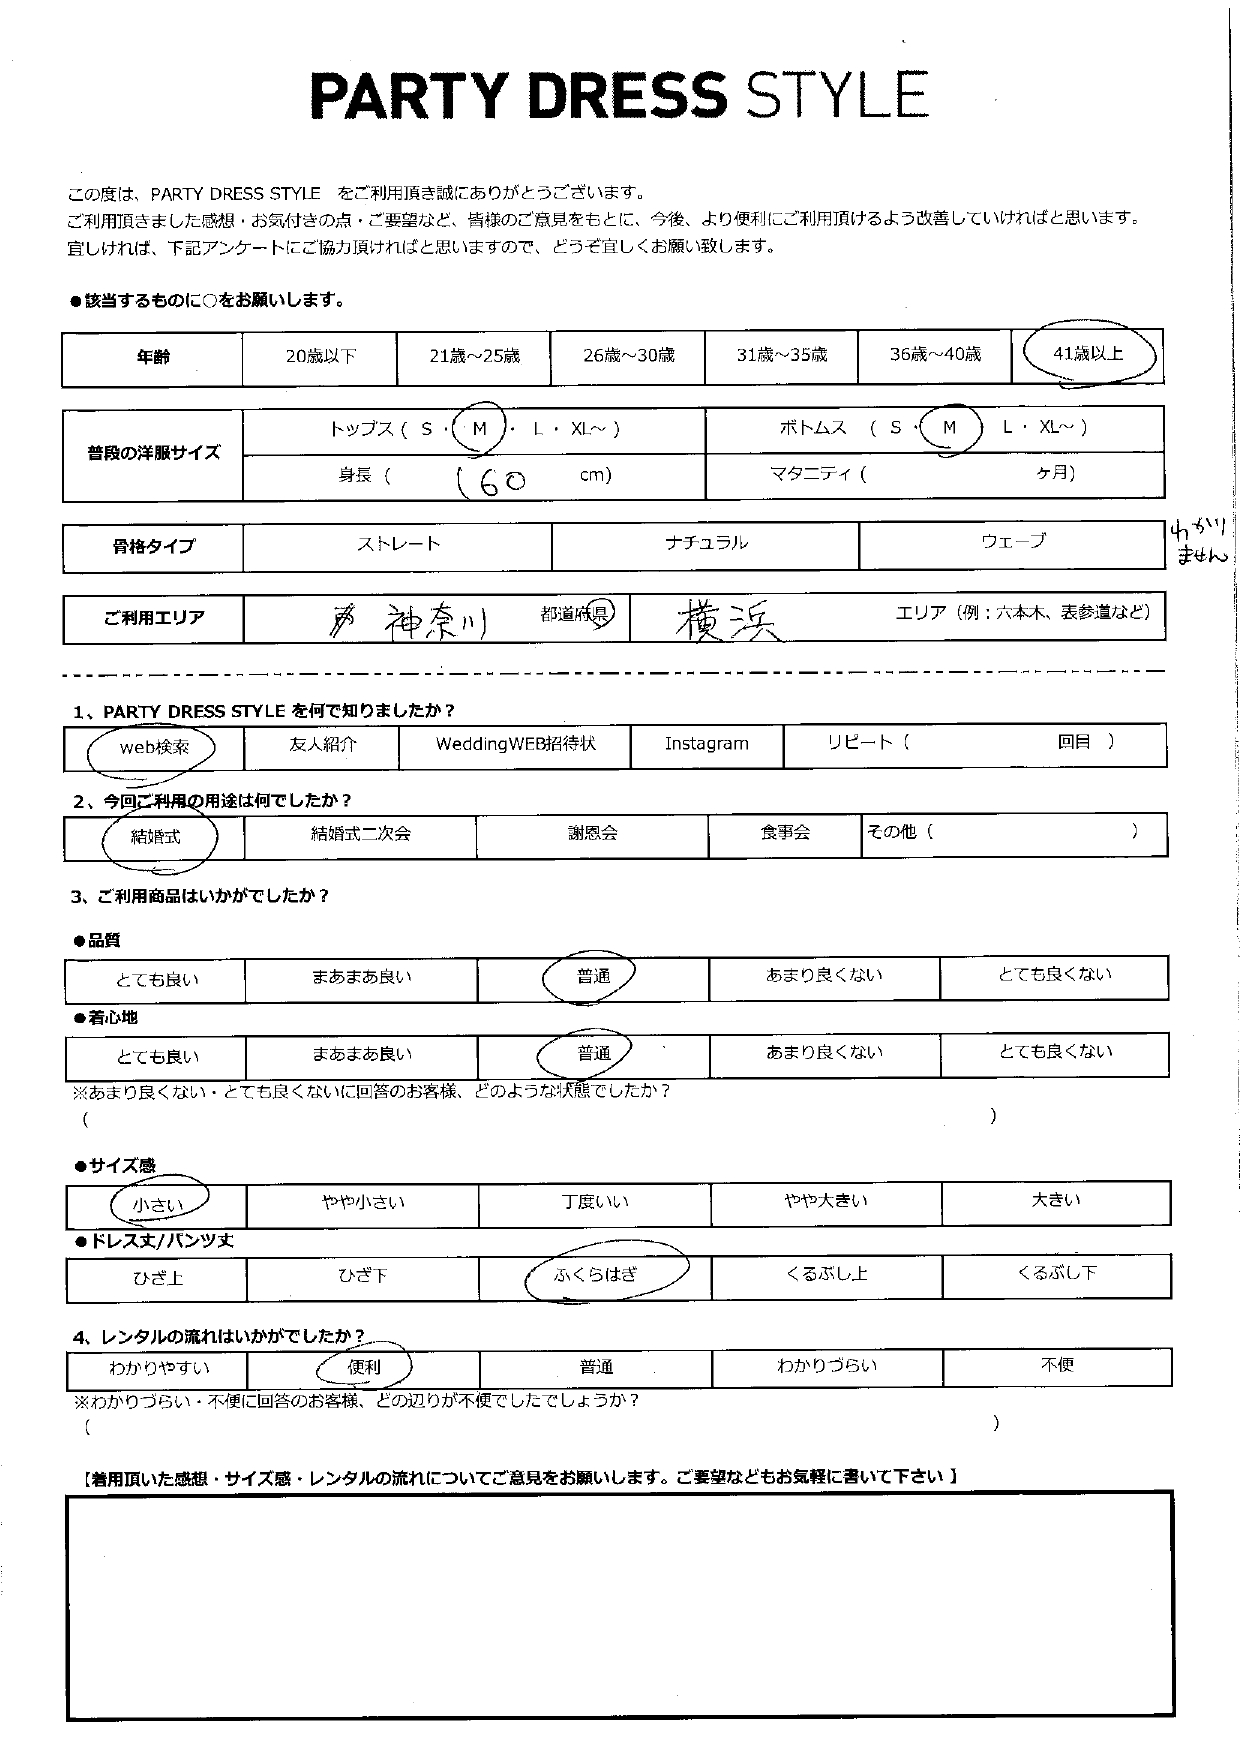 PARTY DRESS STYLE
この度は、PARTY DRESS STYLE をご利用頂き誠にありがとうございます。
ご利用頂きました感想・お気付きの点・ご要望など、皆様のご意見をもとに、今後、より便利にご利用頂けるよう改善していければと思います。
宜しければ、下記アンケートにご協力頂ければと思いますので、どうぞ宜しくお願い致します。
●該当するものに○をお願いします。
年齢 20歳以下 21歳～25歳 26歳～30歳 31歳～35歳 36歳～40歳 41歳以上
普段の洋服サイズ
トップス ( S ・ M ・ L ・ XL～ ) ボトムス ( S ・ M L ・ XL～ )
身長 ( 160 cm) マタニティ ( ヶ月)
骨格タイプ ストレート ナチュラル ウェーブ
わかり
ません
ご利用エリア 神奈川 都道府県 横浜 エリア（例：六本木、表参道など）
1、PARTY DRESS STYLE を何で知りましたか？
web検索 友人紹介 WeddingWEB招待状 Instagram リピート ( 回目 )
2、今回ご利用の用途は何でしたか？
結婚式 結婚式二次会 謝恩会 食事会 その他 ( )
3、ご利用商品はいかがでしたか？
●品質
とても良い まあまあ良い 普通 あまり良くない とても良くない
●着心地
とても良い まあまあ良い 普通 あまり良くない とても良くない
※あまり良くない・とても良くないに回答のお客様、どのような状態でしたか？
( )
●サイズ感
小さい やや小さい 丁度いい やや大きい 大きい
●ドレス丈/パンツ丈
ひざ上 ひざ下 ふくらはぎ くるぶし上 くるぶし下
4、レンタルの流れはいかがでしたか？
わかりやすい 便利 普通 わかりづらい 不便
※わかりづらい・不便に回答のお客様、どの辺りが不便でしたでしょうか？
( )
【着用頂いた感想・サイズ感・レンタルの流れについてご意見をお願いします。ご要望などもお気軽に書いて下さい 】